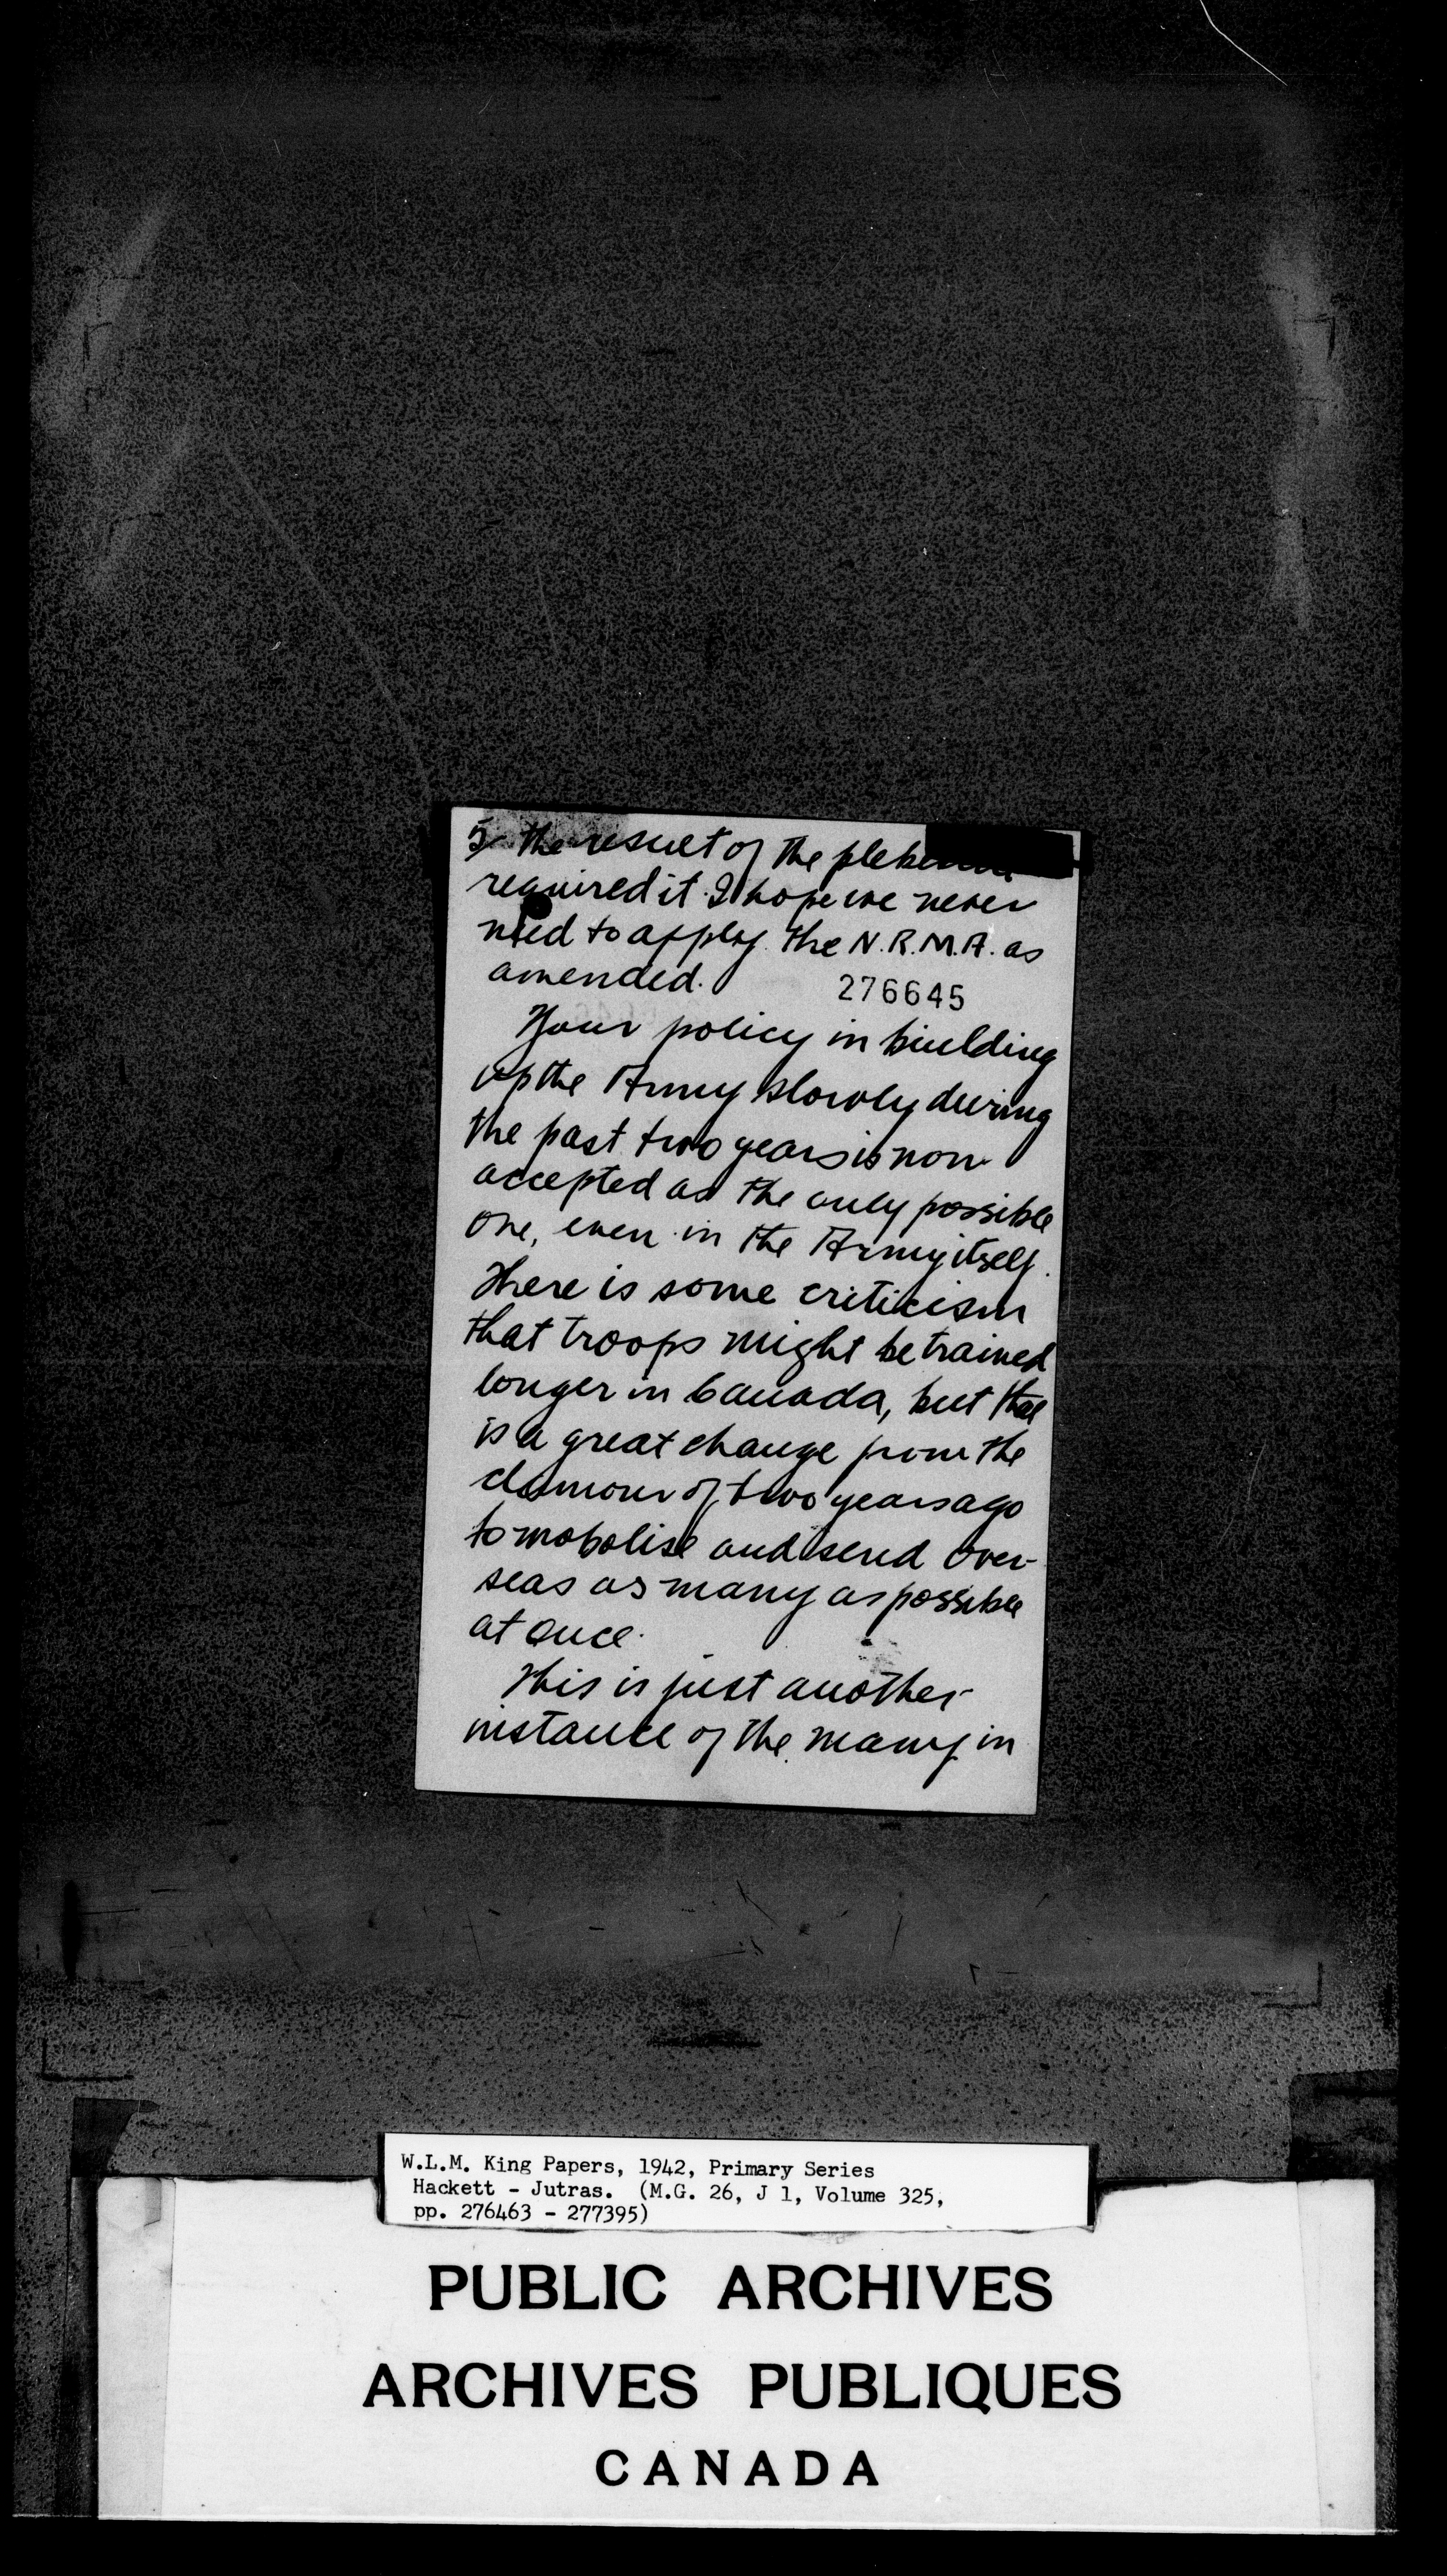 5/ the result of the
required it. I hope we never
need to apply the N.R.M.A. as
amended.
276645
Your policy in building
up the Army slowly during
the past two years is now
accepted as the only possible
one, even in the Army itself.
There is some criticism
that troops might be trained
longer in Canada, but that
is a great change from the
clamour of two years ago
to mobolise and send over-
seas as many as possible
at once.
This is just another
instance of the many in
W.L.M. King Papers, 1942, Primary Series
Hackett - Jutras. (M.G. 26, J 1, Volume 325,
pp. 276463 - 277395)
PUBLIC ARCHIVES
ARCHIVES PUBLIQUES
CANADA